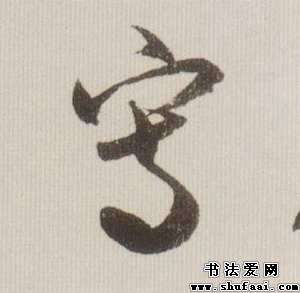 写
书法爱网
www.shufaai.com